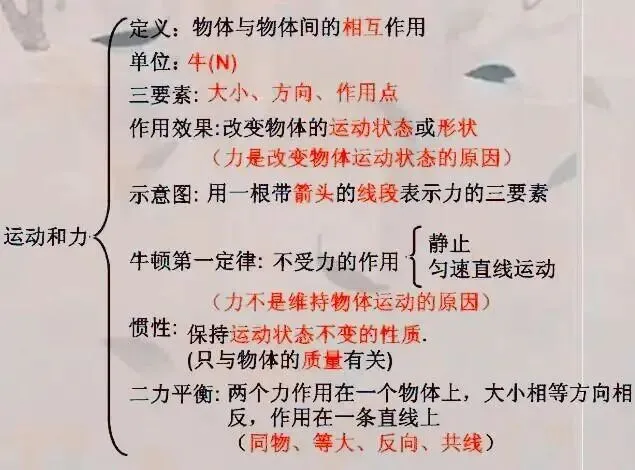 定义：物体与物体间的相互作用
单位：牛(N)
三要素：大小、方向、作用点
作用效果:改变物体的运动状态或形状
（力是改变物体运动状态的原因）
示意图：用一根带箭头的线段表示力的三要素
运动和力
牛顿第一定律：不受力的作用
静止
匀速直线运动
（力不是维持物体运动的原因）
惯性：保持运动状态不变的性质.
(只与物体的质量有关)
二力平衡：两个力作用在一个物体上，大小相等方向相
反，作用在一条直线上
（同物、等大、反向、共线）